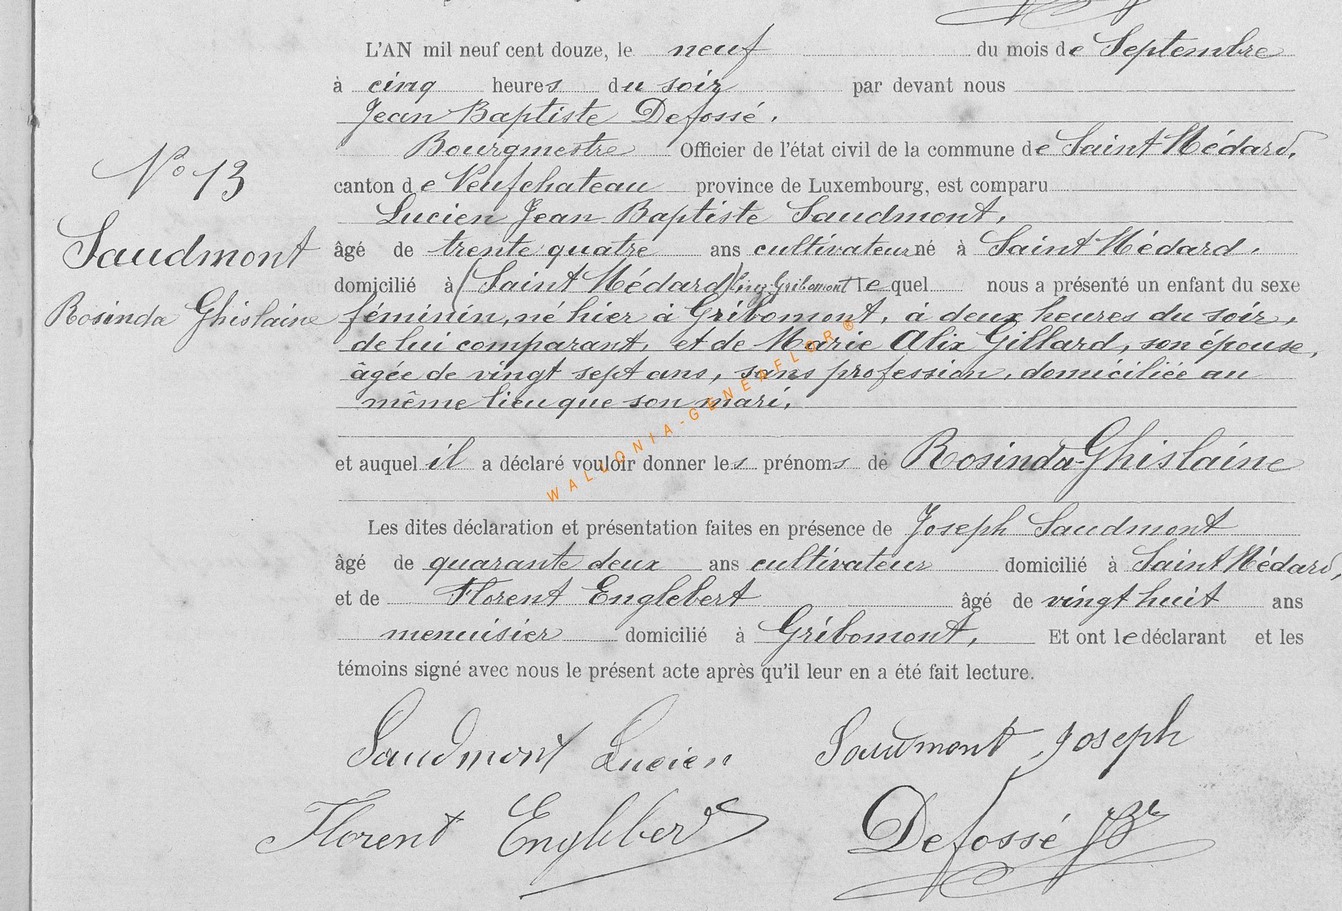 L'AN mil neuf cent douze, le neuf du mois de Septembre
à cinq heures du soir par devant nous
Jean Baptiste Defossé.
Bourgmestre Officier de l'état civil de la commune de Saint Médard,
N° 13
canton de Neufchateau province de Luxembourg, est comparu
Lucien Jean Baptiste Saudmont,
Saudmont
âgé de trente quatre ans cultivateur né à Saint Médard.
domicilié à (Saint Médard) lisez Gribomont Lequel nous a présenté un enfant du sexe
Rosinda Ghislaine
féminin, né hier à Gribomont, à deux heures du soir,
de lui comparant, et de Marie Alix Gillard, son épouse,
âgée de vingt sept ans, sans profession, domiciliée au
même lieu que son mari.
WALLONIA-GENERFLOR ®
et auquel il a déclaré vouloir donner les prénoms de Rosinda-Ghislaine
Les dites déclaration et présentation faites en présence de Joseph Saudmont
âgé de quarante deux ans cultivateur domicilié à Saint Médard,
et de Florent Englebert âgé de vingt huit ans
menuisier domicilié à Gribomont, Et ont le déclarant et les
témoins signé avec nous le présent acte après qu'il leur en a été fait lecture.
Saudmont Lucien Saudmont Joseph
Florent Englebert Defossé JBte